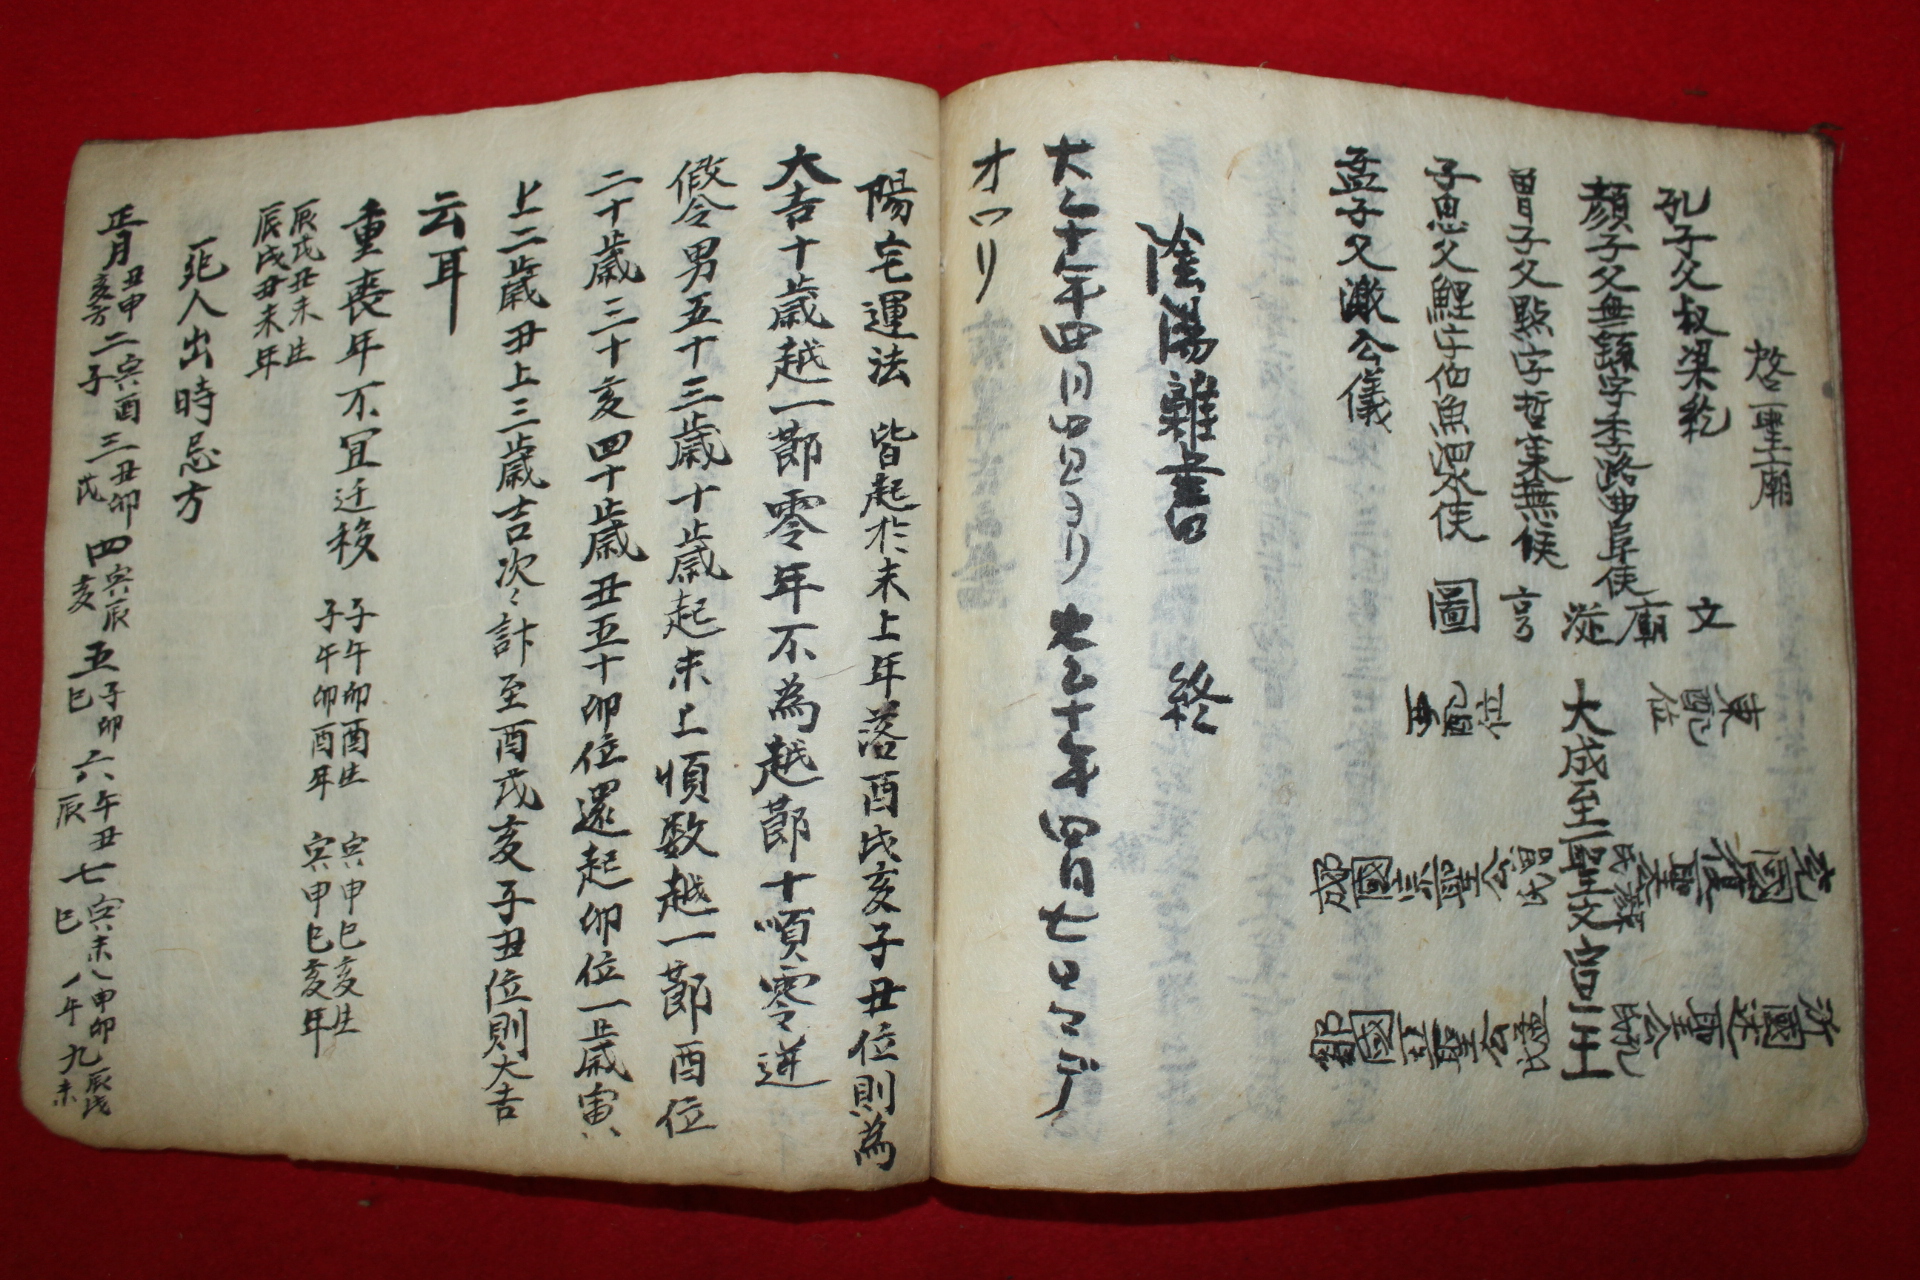 啓聖廟
孔子父叔梁紇
顔子父無繇字季路曲阜侯
曾子父點字晳萊蕪侯
子思父鯉字伯魚泗水侯
孟子父激公儀
文廟從享圖
東配位
大成至聖文宣王
西配位
兗國復聖公顔氏
郕國宗聖公曾氏
沂國述聖公孔氏
鄒國亞聖公孟氏
陰陽雜書 終
大正十年四月四日ヨリ大正十年四月七日マデ
オワリ
陽宅運法 皆起於未上年落酉戌亥子丑位則為
大吉十歳越一節零年不為越節十順零逆
假令男五十三歳十歳起未上順数越一節酉位
二十歳三十亥四十歳丑五十卯位還起卯位一歳寅
上二歳丑上三歳吉次々計至酉戌亥子丑位則大吉
云耳
重喪年不宜迁移 子午卯酉生 子午卯酉年 寅申巳亥生 寅申巳亥年
辰戌丑未生 辰戌丑未年
死人出時忌方
正月 丑申 亥方 二 寅酉 子 三 丑卯 戌 四 寅辰 亥 五 子卯 巳 六 午丑 辰 七 寅未 巳 八 申卯 午 九 辰戌 未